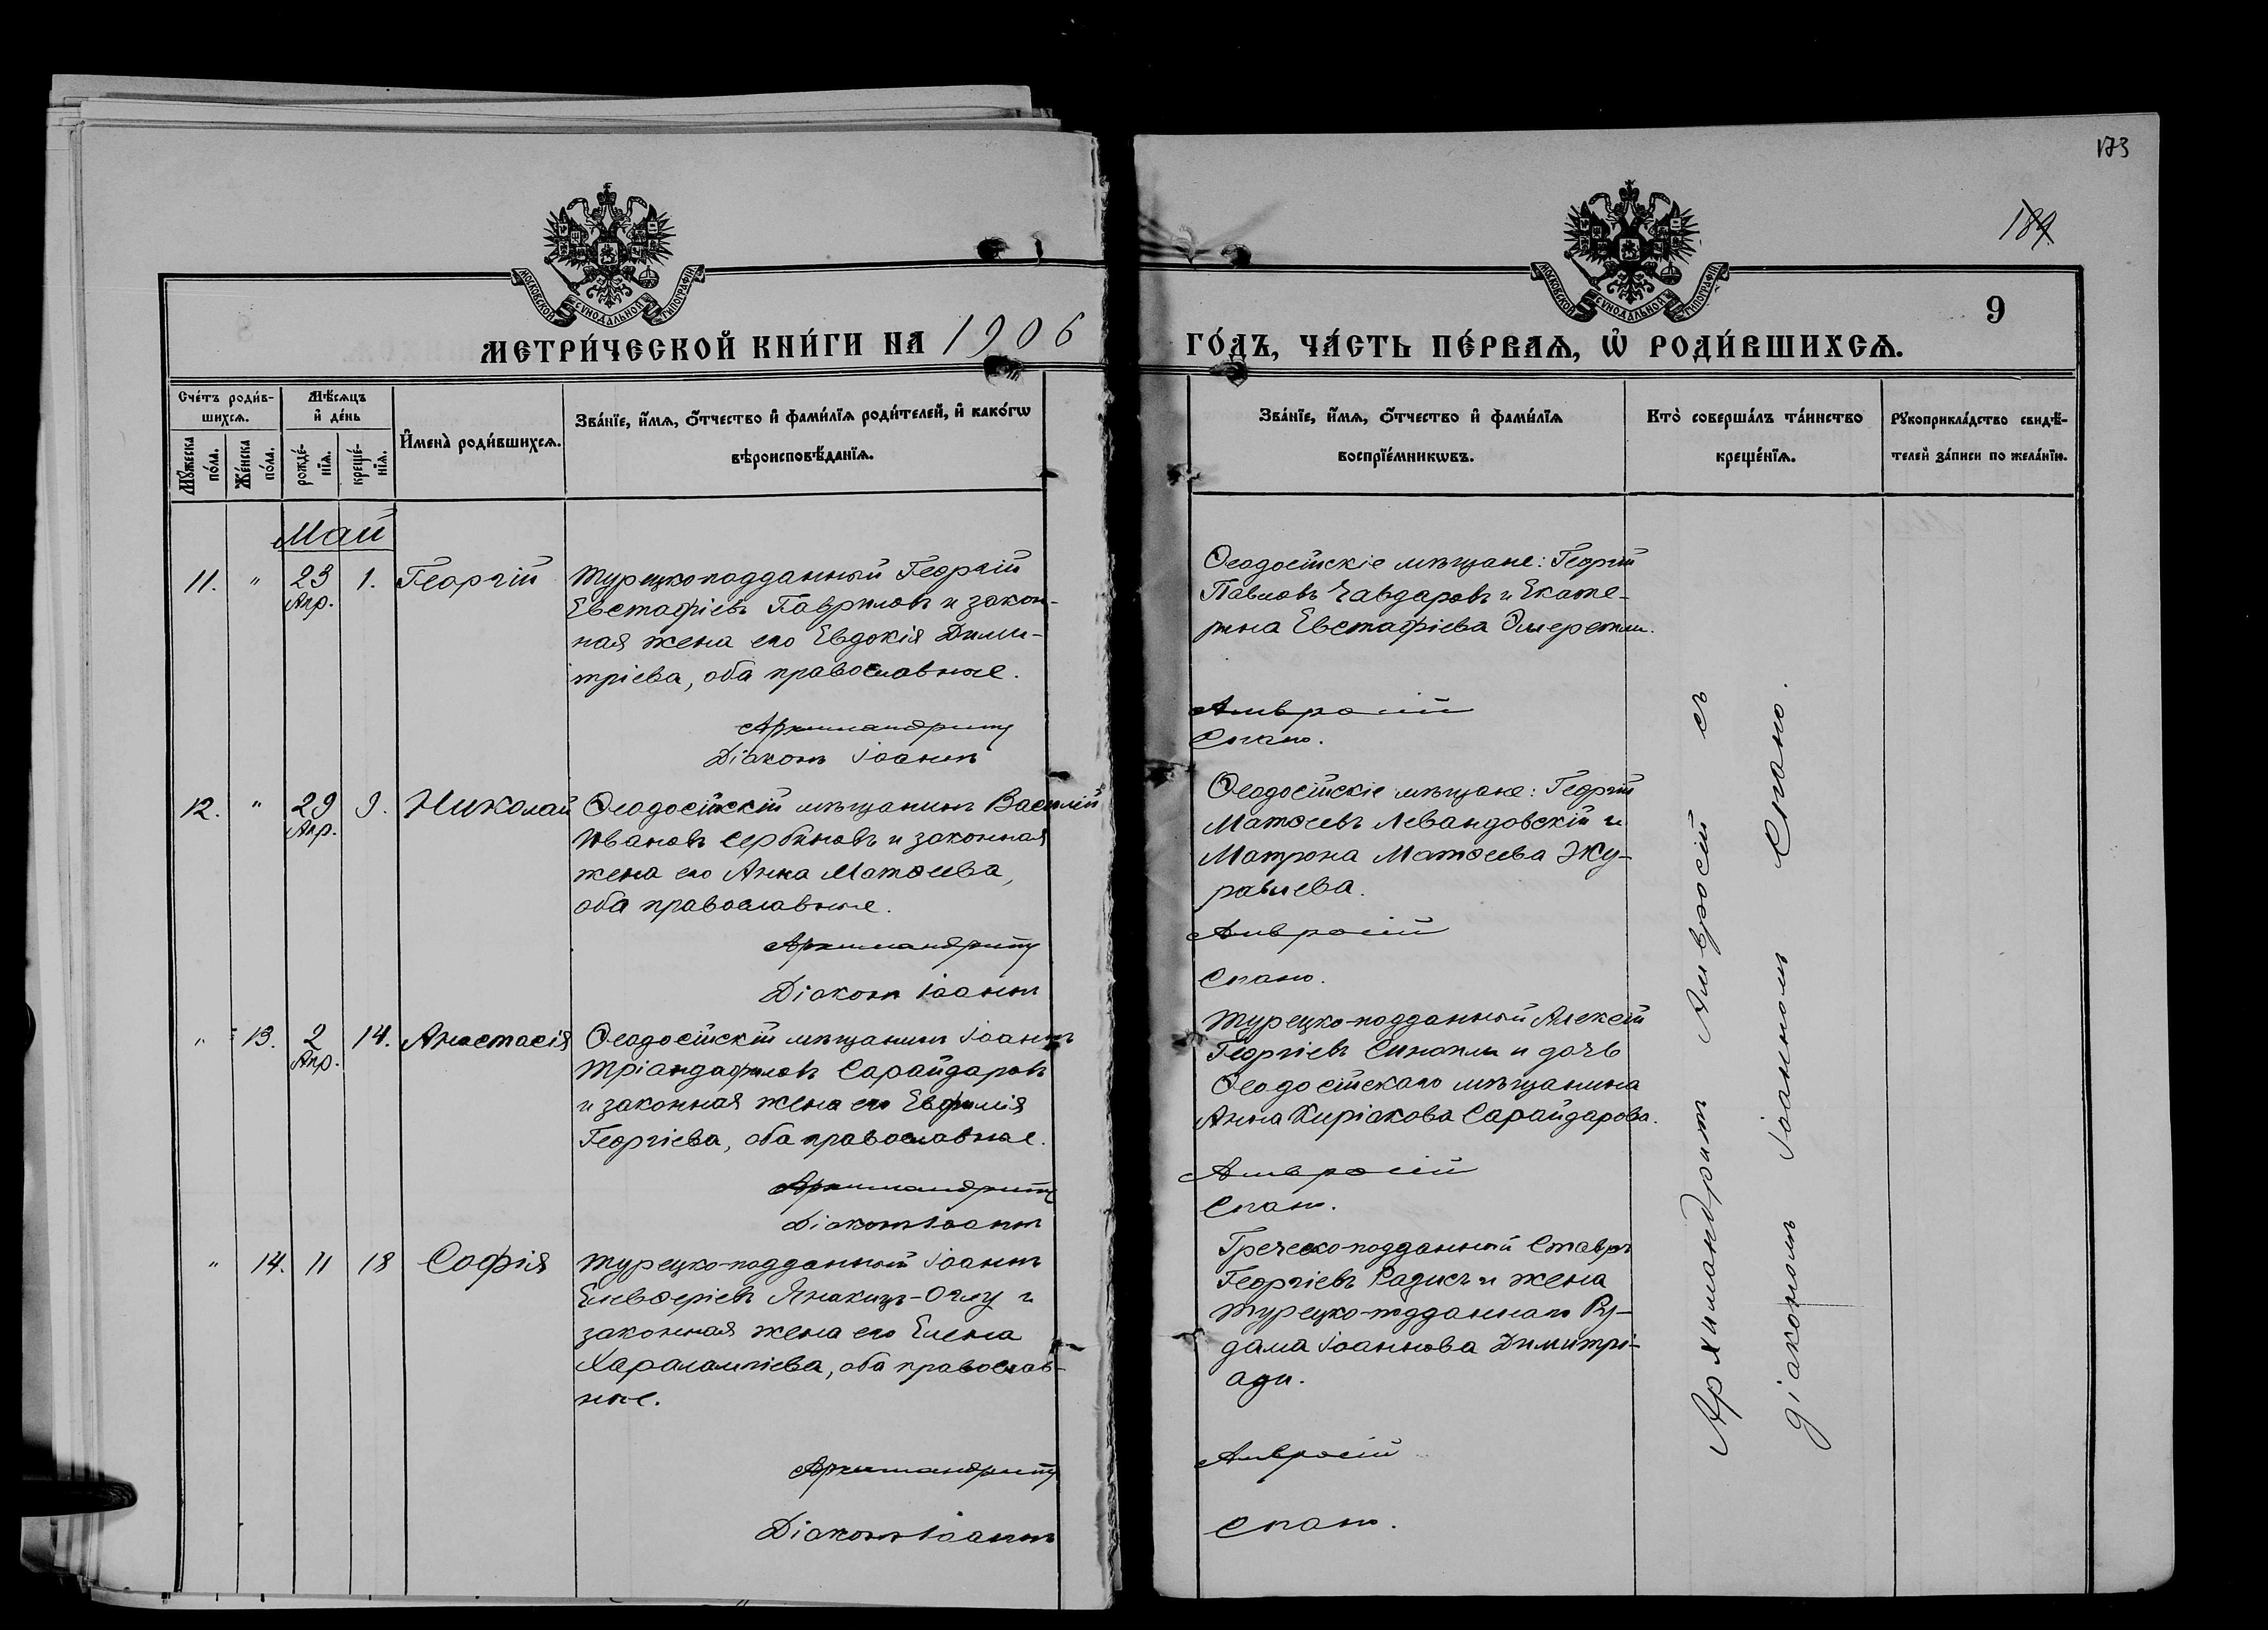 173
189
МОСКОВСКОЙ СУНОДАЛЬНОЙ ТИПОГРАФІИ
МОСКОВСКОЙ СУНОДАЛЬНОЙ ТИПОГРАФІИ
9
МЕТРИ́ЧЕСКОЙ КНИ́ГИ НА 1906
ГО́ДЪ, ЧА́СТЬ ПЕ́РВАѦ, Ѡ҆ РОДИ́ВШИХСѦ.
Сче́тъ роди́в-
шихсѧ.
Мꙋ́жеска по́ла.
Же́нска по́ла.
Мѣ́сѧцъ
и҆ де́нь
рожде́-
нїѧ.
креще́-
нїѧ.
И҆мена̀ роди́вшихсѧ.
Зва́нїе, и҆́мѧ, ѻ҆́тчество и҆ фами́лїѧ роди́телей, и҆ како́гѡ
вѣроисповѣ́данїѧ.
Зва́нїе, и҆́мѧ, ѻ҆́тчество и҆ фами́лїѧ
воспрїе́мникѡвъ.
Кто̀ соверша́лъ та́инство
креще́нїѧ.
Рꙋкоприкла́дство свидѣ́-
телей за́писи по жела́нїю.
Май
11. " 23 Апр. 1. Георгій
Турецкоподданный Георгій
Евстафіевъ Гавриловъ и закон-
ная жена его Евдокія Дими-
тріева, оба православные.
Архимандритъ
Діаконъ Іоаннъ
Ѳеодосійскіе мѣщане: Георгій
Павловъ Чавдаровъ и Екате-
рина Евстафіева Эмеретли.
Амвросій
Спано.
12. " 29 Апр. 9. Николай
Ѳеодосійскій мѣщанинъ Василій
Ивановъ Сербиновъ и законная
жена его Анна Матѳеева,
оба православные.
Архимандритъ
Діаконъ Іоаннъ
Ѳеодосійскіе мѣщане: Георгій
Матѳеевъ Левандовскій и
Матрона Матѳеева Жу-
равлева.
Амвросій
Спано.
" 13. 2 Апр. 14. Анастасія
Ѳеодосійскій мѣщанинъ Іоаннъ
Тріандафиловъ Сарайдаровъ
и законная жена его Евфимія
Георгіева, оба православные.
Архимандритъ
Діаконъ Іоаннъ
Турецко-подданный Алексій
Георгіевъ Синопли и дочь
Ѳеодосійскаго мѣщанина
Анна Киріакова Сарайдарова.
Амвросій
Спано.
" 14. 11 18 Софія
Турецко-подданный Іоаннъ
Елевѳеріевъ Янакизъ-Оглу и
законная жена его Елена
Харалампіева, оба православ-
ные.
Архимандритъ
Діаконъ Іоаннъ
Греческо-подданный Ставръ
Георгіевъ и жена
Турецко-подданнаго Ру-
дама Іоаннова Димитрі-
ади.
Амвросій
Спано.
Архимандритъ Амвросій съ
діакономъ Іоанномъ Спано.